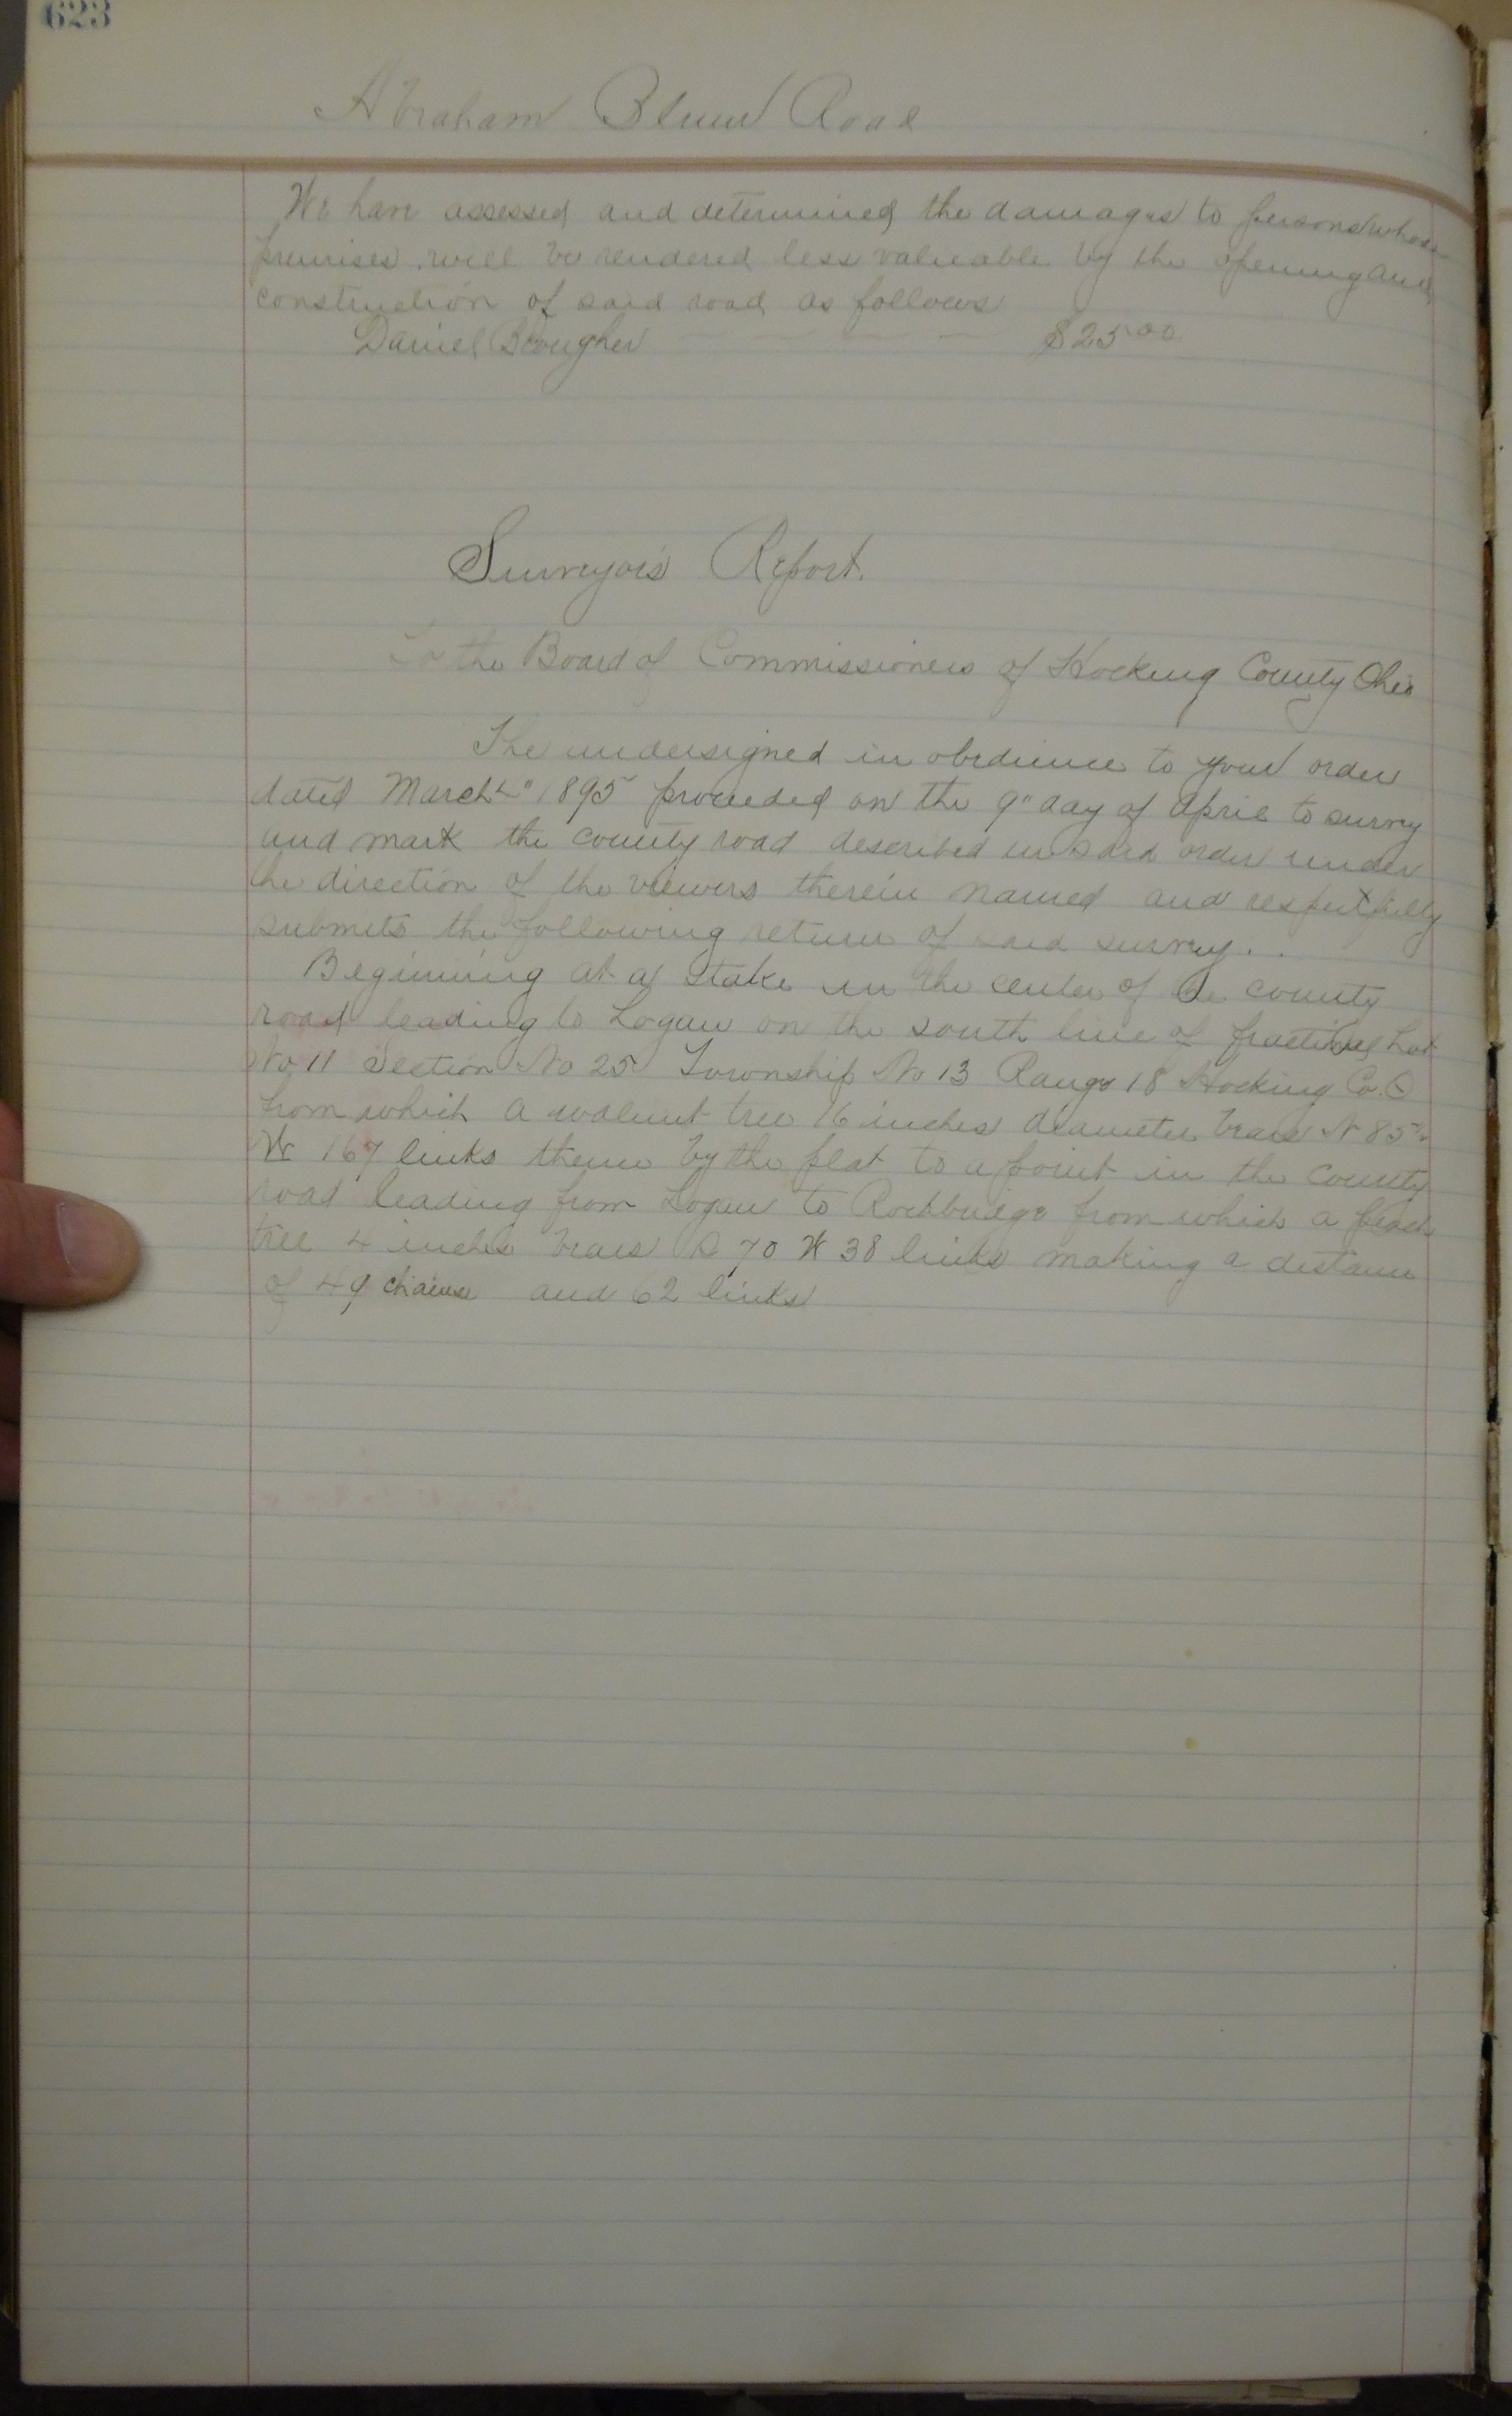 623
Abraham Blum Road
We have assessed and determined the damages to persons whose
premises will be rendered less valueable by the opening and
construction of said road as follows
Daniel Blougher $25.00
Surveyor's Report.
To the Board of Commissioners of Hocking County Ohio
The undersigned in obedience to your order
dated March 4" 1895 proceeded on the 9" day of April to survey
and mark the county road described in said order under
the direction of the viewers therein named and respectfully
submits the following return of said survey.
Begining at a stake in the center of the county
road leading to Logan on the south line of fractional Lot
No 11 Section No 25 Township No 13 Range 18 Hocking Co. O
from which a walnut tree 16 inches diameter bears N 85
W 167 links thence by the plat to a point in the county
road leading from Logan to Rockbridge from which a peach
tree 4 inches bears S 70 W 38 links making a distance
of 49 chains and 62 links